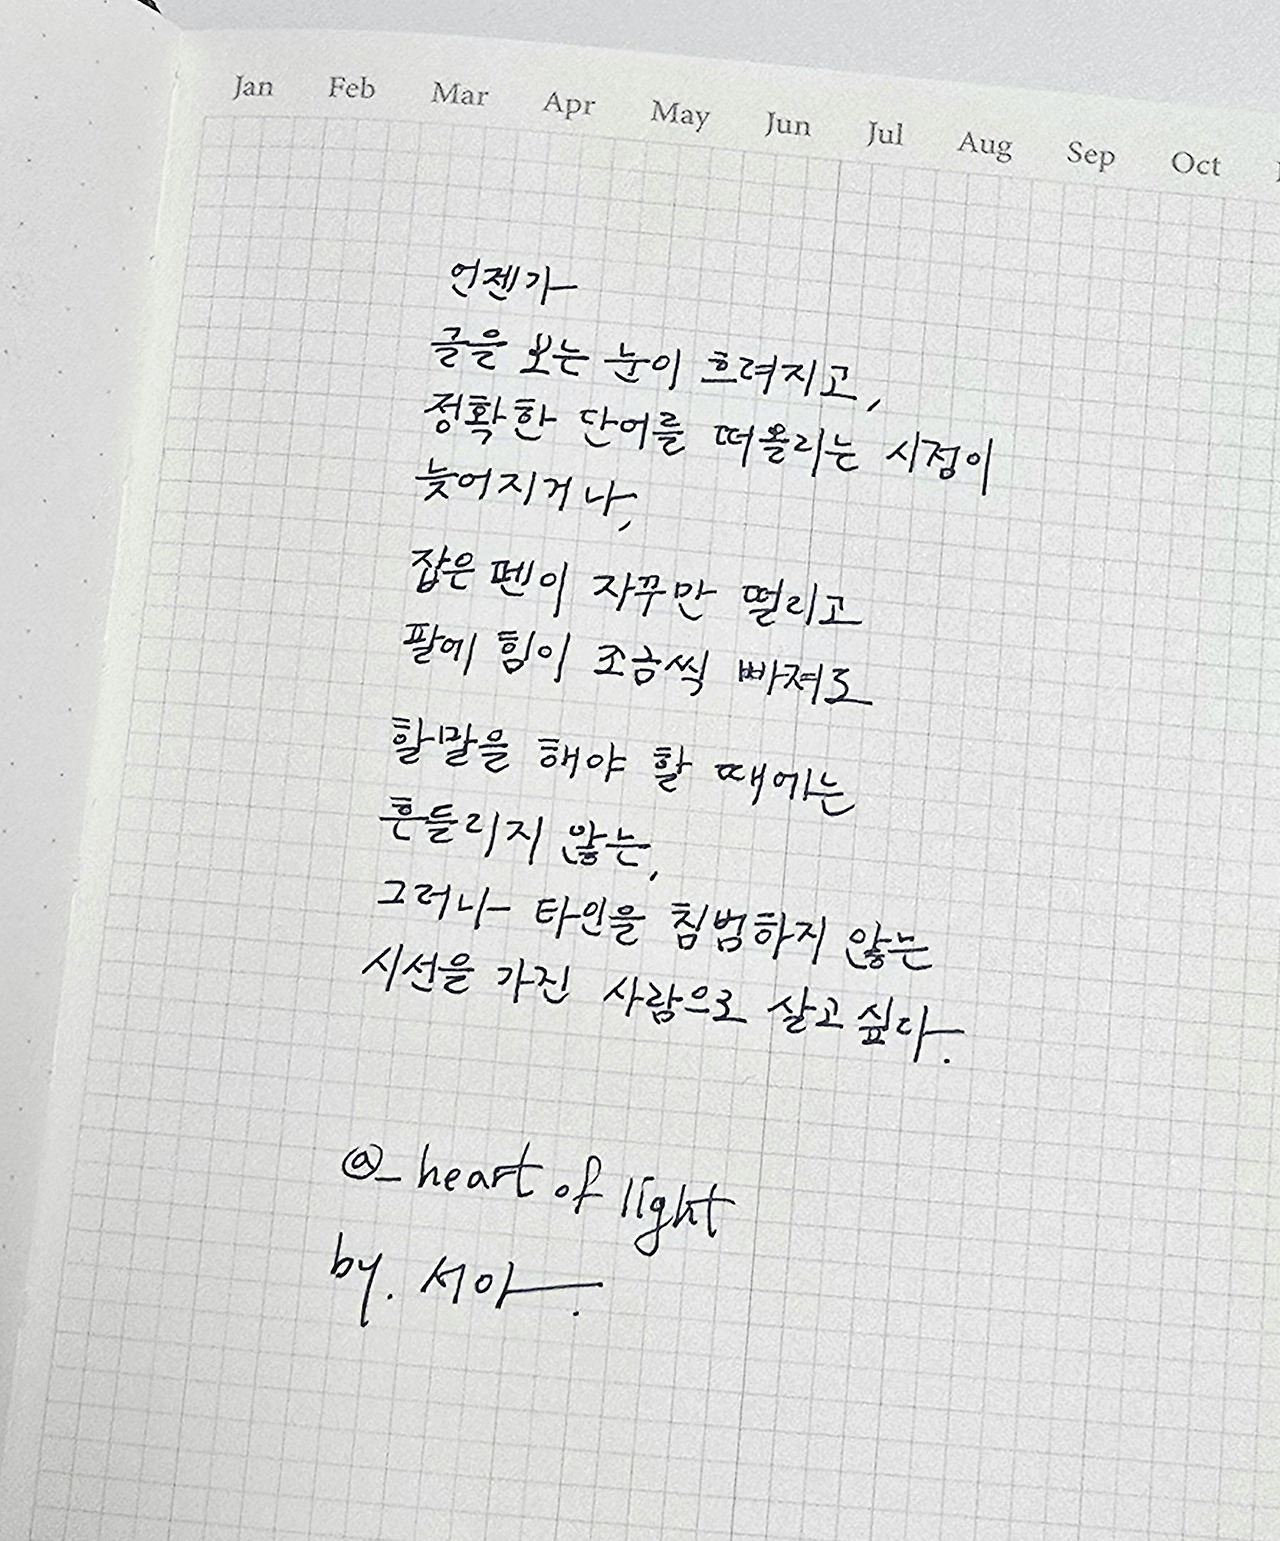 Jan Feb Mar Apr May Jun Jul Aug Sep Oct
언젠가
글을 보는 눈이 흐려지고,
정확한 단어를 떠올리는 시점이
늦어지거나,
잡은 펜이 자꾸만 떨리고
팔에 힘이 조금씩 빠져도
할말을 해야 할 때에는
흔들리지 않는,
그러나 타인을 침범하지 않는
시선을 가진 사람으로 살고 싶다.
@_heart of light
by. 서아.